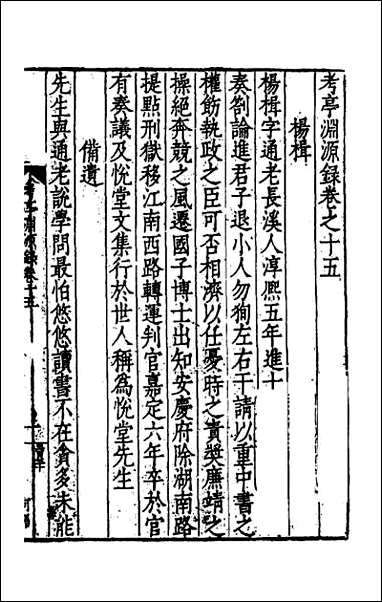 考亭淵源錄卷之十五
楊楫
楊楫字通老長溪人淳熙五年進士
奏劄論進君子退小人勿狥左右干請以重中書之
權飭執政之臣可否相濟以任憂時之責奬廉靖之
操絕奔競之風遷國子博士出知安慶府除湖南路
提點刑獄移江南西路轉運判官嘉定六年卒於官
有奏議及悅堂文集行於世人稱為悅堂先生
備遺
先生與通老說學問最怕悠悠讀書不在貪多未能
考亭淵源錄卷十五